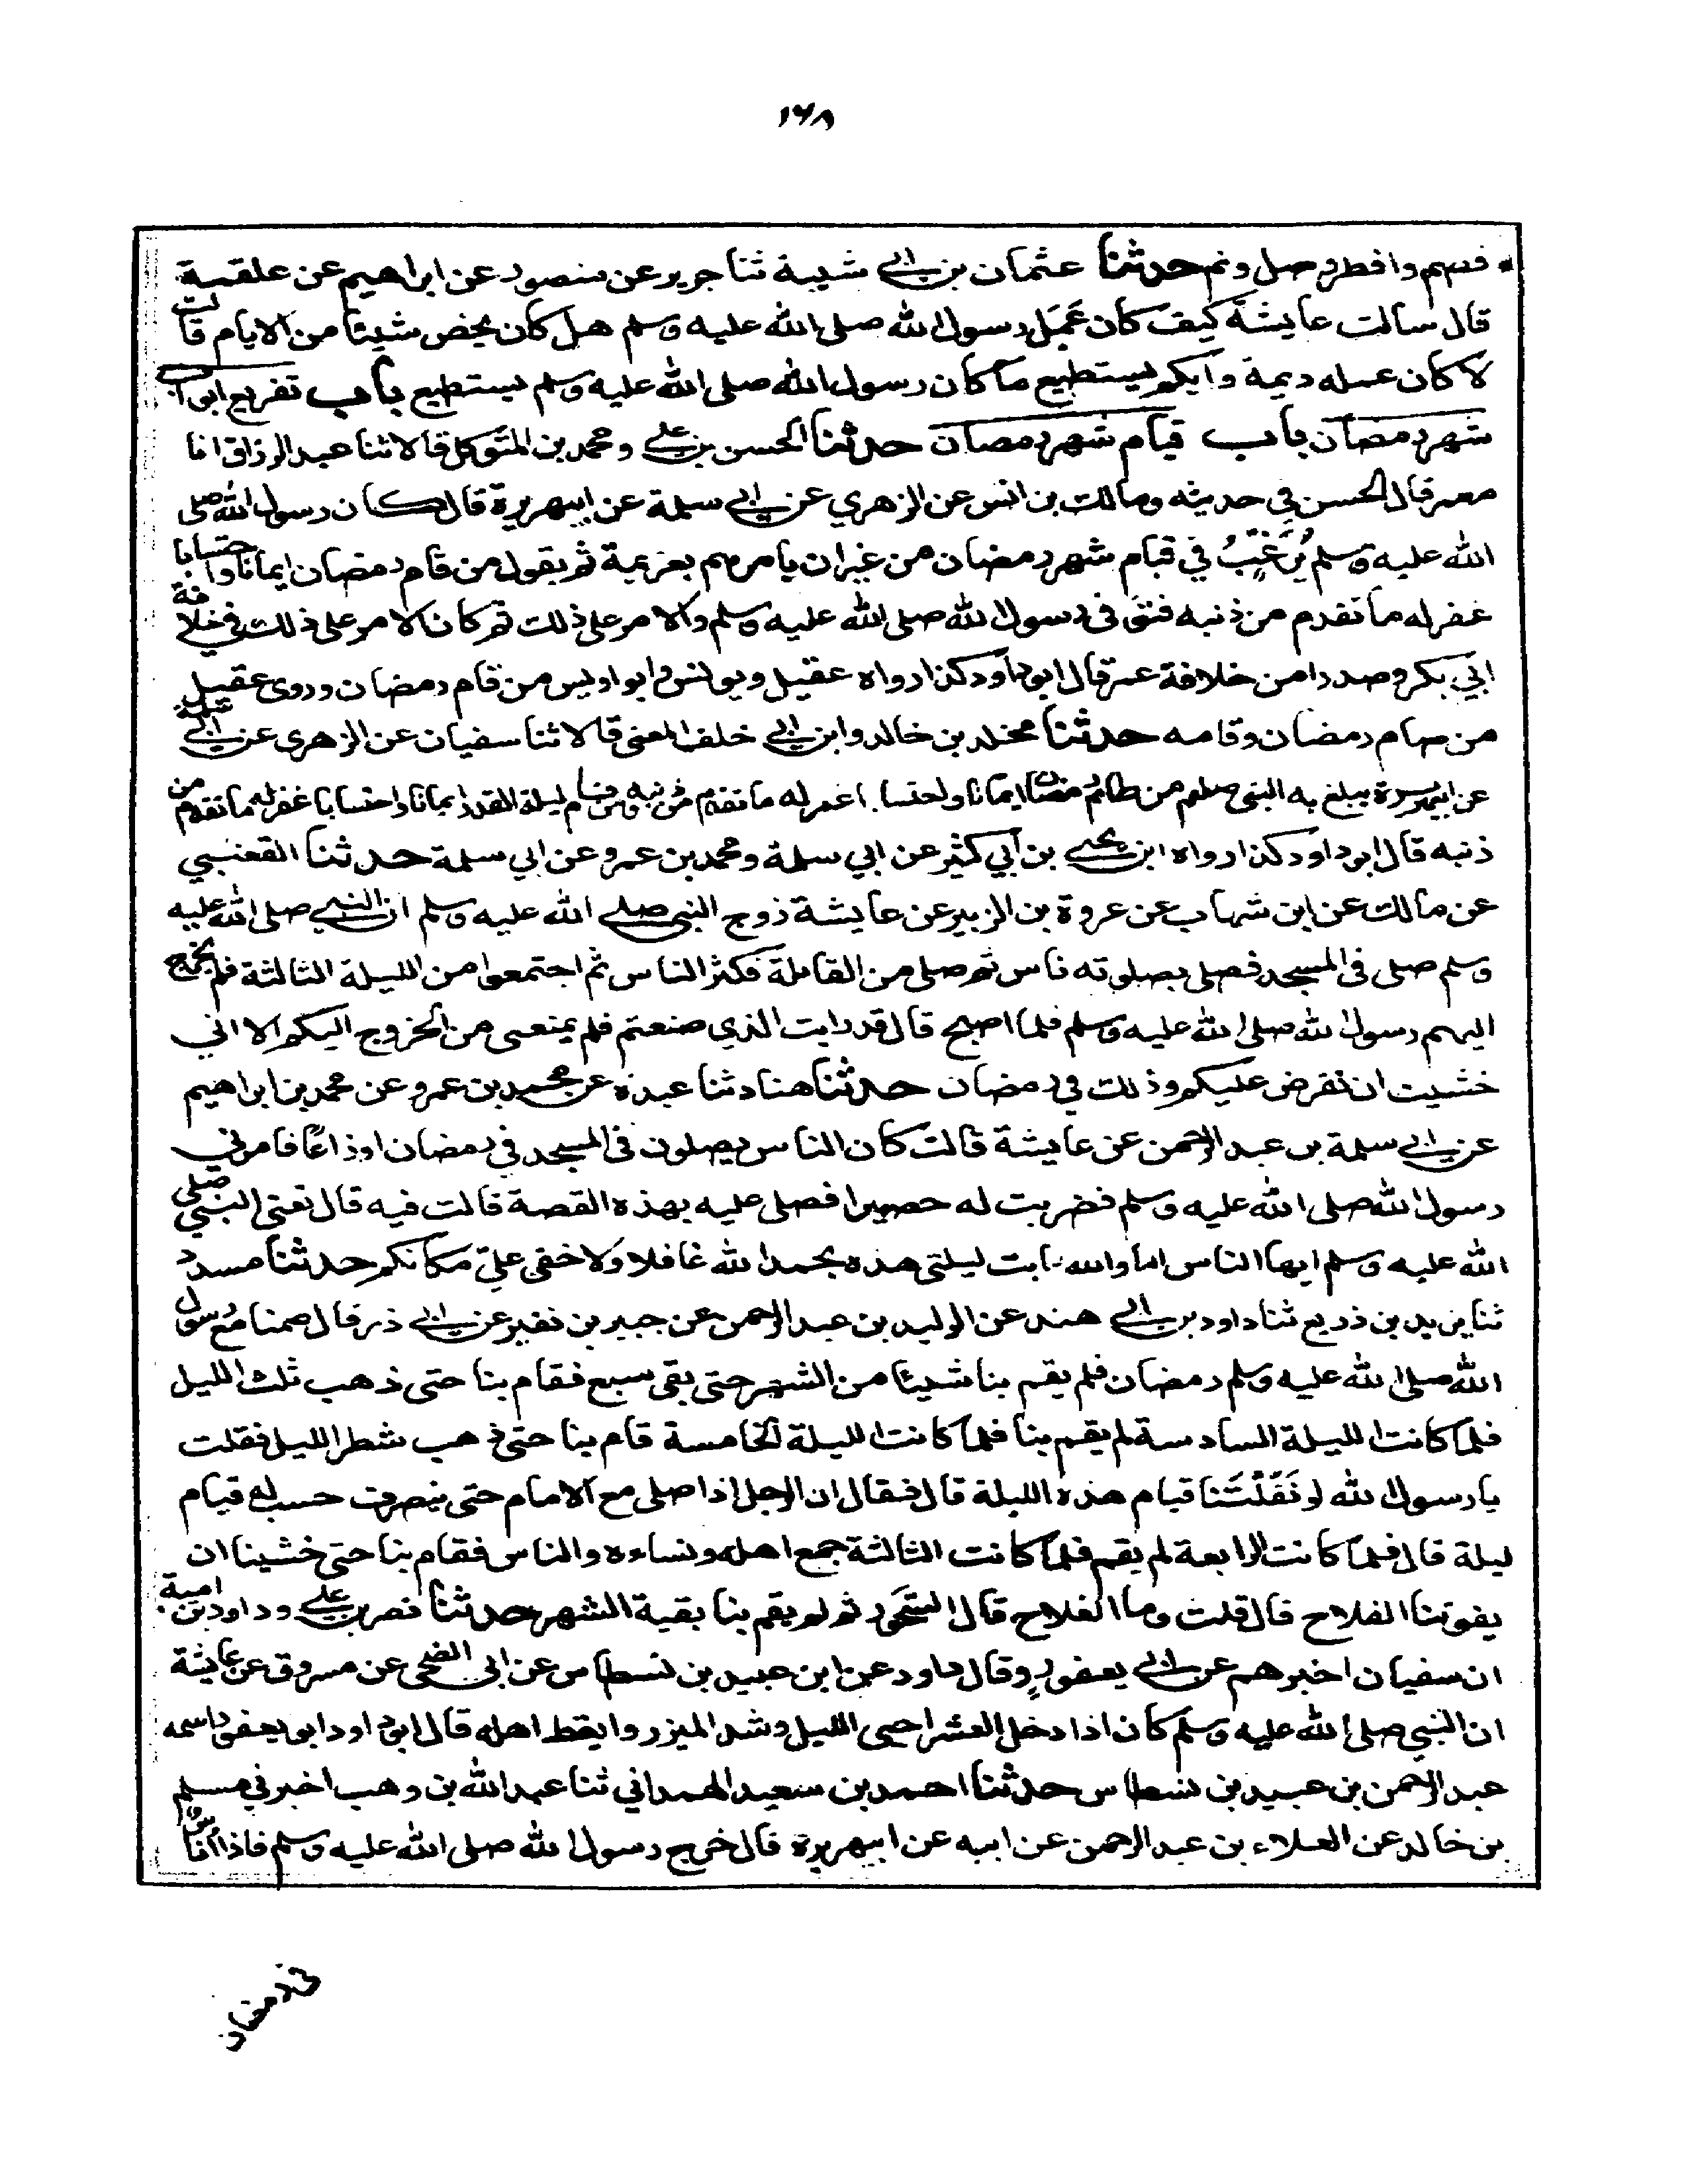 ١٦٨
فصم وافطر وصل ونم حدثنا عثمان بن ابي شيبة ثنا جرير عن منصور عن ابراهيم عن علقمة
قال سالت عايشة كيف كان عمل رسول الله صلى الله عليه وسلم هل كان يخص شيئا من الايام قالت
لا كان عمله ديمة وايكم يستطيع ما كان رسول الله صلى الله عليه وسلم يستطيع باب تفريع ابواب
شهر رمضان باب قيام شهر رمضان حدثنا الحسن بن علي ومحمد بن المتوكل قالا ثنا عبد الرزاق انا
معمر قال الحسن في حديثه ومالك بن انس عن الزهري عن ابي سلمة عن ابيهريرة قال كان رسول الله صلى
الله عليه وسلم يُرَغِّبُ في قيام شهر رمضان من غير ان يامرهم بعزيمة ثم يقول من قام رمضان ايمانا واحتسابا
غفر له ما تقدم من ذنبه فتوفى رسول الله صلى الله عليه وسلم والامر على ذلك ثم كان الامر على ذلك في خلافة
ابي بكر وصدرا من خلافة عمر قال ابو داود كذا رواه عقيل ويونس وابو اويس من قام رمضان وروى عقيل
من صام رمضان وقامه حدثنا مخلد بن خالد وابن ابي خلف المعنى قالا ثنا سفيان عن الزهرى عن ابي سلمة
عن ابيهريرة يبلغ به النبي صلعم من صام رمضان ايمانا واحتسابا غفر له ما تقدم من ذنبه ومن قام ليلة القدر ايمانا واحتسابا غفر له ما تقدم من
ذنبه قال ابو داود كذا رواه ابن يحيى بن أبي كثير عن ابي سلمة ومحمد بن عمرو عن ابي سلمة حدثنا القعنبي
عن مالك عن ابن شهاب عن عروة بن الزبير عن عايشة زوج النبي صلى الله عليه وسلم ان النبي صلى الله عليه
وسلم صلى في المسجد فصلى بصلوته ناس ثم صلى من القابلة فكثر الناس ثم اجتمعوا من الليلة الثالثة فلم يخرج
اليهم رسول الله صلى الله عليه وسلم فلما اصبح قال قد رايت الذي صنعتم فلم يمنعنى من الخروج اليكم الا اني
خشيت ان تفرض عليكم وذلك في رمضان حدثنا هناد ثنا عبدة عن محمد بن عمرو عن محمد بن ابراهيم
عن ابي سلمة بن عبد الرحمن عن عايشة قالت كان الناس يصلون في المسجد في رمضان اوزاعًا فامرني
رسول الله صلى الله عليه وسلم فضربت له حصيرا فصلى عليه بهذه القصة قالت فيه قال تعني النبي صلى
الله عليه وسلم ايها الناس اما والله ما بت ليلتي هذه بحمد الله غافلا ولا خفي عليّ مكانكم حدثنا مسدد
ثنا يزيد بن زريع ثنا داود بن ابي هند عن الوليد بن عبد الرحمن عن جبير بن نفير عن ابي ذر قال صمنا مع رسول
الله صلى الله عليه وسلم رمضان فلم يقم بنا شيئا من الشهر حتى بقى سبع فقام بنا حتى ذهب ثلث الليل
فلما كانت الليلة السادسة لم يقم بنا فلما كانت الليلة الخامسة قام بنا حتى ذهب شطر الليل فقلت
يا رسول الله لو نَفَّلْتَنا قيام هذه الليلة قال فقال ان الرجل اذا صلى مع الامام حتى ينصرف حسب له قيام
ليلة قال فلما كانت الرابعة لم يقم فلما كانت الثالثة جمع اهله ونساءه والناس فقام بنا حتى خشينا ان
يفوتنا الفلاح قال قلت وما الفلاح قال السَّحُور ثم لم يقم بنا بقية الشهر حدثنا نصر بن علي وداود بن امية
ان سفيان اخبرهم عن ابي يعفور وقال داود عن ابن عبيد بن نسطاس عن ابى الضحى عن مسروق عن عايشة
ان النبي صلى الله عليه وسلم كان اذا دخل العشر احيى الليل وشد الميزر وايقظ اهله قال ابو داود ابو يعفور اسمه
عبد الرحمن بن عبيد بن نسطاس حدثنا احمد بن سعيد الهمداني ثنا عبد الله بن وهب اخبرني مسلم
بن خالد عن العلاء بن عبد الرحمن عن ابيه عن ابيهريرة قال خرج رسول الله صلى الله عليه وسلم فاذا اناس
في رمضان